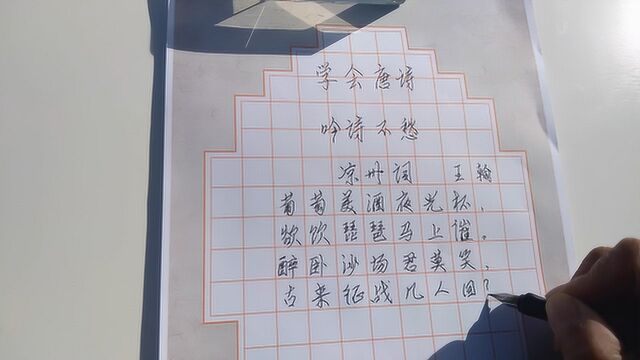 学会唐诗
吟诗不愁
凉州词 王翰
葡萄美酒夜光杯,
欲饮琵琶马上催。
醉卧沙场君莫笑,
古来征战几人回?